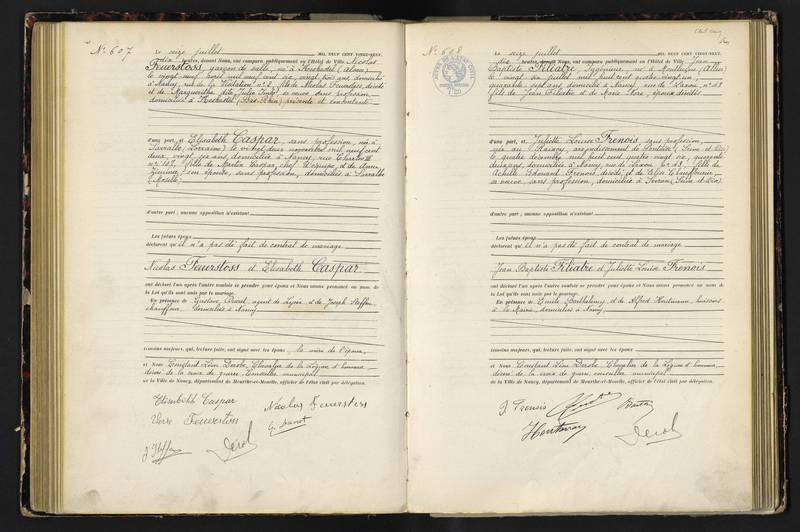 N° 607
Le seize juillet MIL NEUF CENT VINGT-NEUF,
dix heures, devant Nous, ont comparu publiquement en l'Hôtel de Ville Nicolas
FEUERSTOSS, garçon de salle, né à
le vingt neuf avril mil neuf cent six, vingt trois ans, domicilié
à Nancy, rue de la N° 2, fils de Nicolas Feuerstoss, décédé
et de Marguerite sa veuve, sans profession,
domiciliée à (Bas-Rhin) présente et consentante
d'une part, et Elisabeth CASPAR, sans profession, née à
Sarralbe (Lorraine) le vingt deux novembre mil neuf cent
deux, vingt six ans, domiciliée à Nancy, rue Charles III
n° 107, fille de Martin Caspar, chef d'équipe, et de
son épouse, sans profession, domiciliés à Sarralbe
(Moselle)
d'autre part ; aucune opposition n'existant
Les futurs époux
déclarent qu'il n'a pas été fait de contrat de mariage
Nicolas FEUERSTOSS et Elisabeth CASPAR
ont déclaré l'un après l'autre vouloir se prendre pour époux et Nous avons prononcé au nom de
la Loi qu'ils sont unis par le mariage.
En présence de Gustave agent de et de Joseph Steffen,
chauffeur, domiciliés à Nancy
témoins majeurs, qui, lecture faite, ont signé avec les époux, la mère de l'époux,
et Nous Constant Léon Chevalier de la Légion d'honneur,
décoré de la croix de guerre, Conseiller municipal
de la Ville de Nancy, département de Meurthe-et-Moselle, officier de l'état civil par délégation.
Elisabeth Caspar
Nicolas Feuerstoss
Feuerstoss
N° 608
Le seize juillet MIL NEUF CENT VINGT-NEUF,
dix heures, devant Nous, ont comparu publiquement en l'Hôtel de Ville Jean
Baptiste FILIATRE, Ingénieur, né à Montluçon (Allier)
le vingt six juillet mil huit cent quatre vingt un,
quarante sept ans, domicilié à Nancy, rue de n° 48
fils de Jean Filiatre et de Marie époux décédés
d'une part, et Juliette Louise FRENOIS sans profession,
née au Raincy, arrondissement de Pontoise (Seine et Oise)
le quatre décembre mil huit cent quatre vingt six, quarante
deux ans, domiciliée à Nancy, rue de n° 48, fille de
Achille Edouard Frenois, décédé, et de
sa veuve, sans profession, domiciliée à Sevran (Seine et Oise)
d'autre part ; aucune opposition n'existant
Les futurs époux
déclarent qu'il n'a pas été fait de contrat de mariage
Jean Baptiste FILIATRE et Juliette Louise FRENOIS
ont déclaré l'un après l'autre vouloir se prendre pour époux et Nous avons prononcé au nom de
la Loi qu'ils sont unis par le mariage.
En présence de Emile Barthélemy et de Alfred
à la Mairie, domiciliés à Nancy
témoins majeurs, qui, lecture faite, ont signé avec les époux
et Nous Constant Léon Chevalier de la Légion d'honneur,
décoré de la croix de guerre, conseiller municipal
de la Ville de Nancy, département de Meurthe-et-Moselle, officier de l'état civil par délégation.
J. Frenois